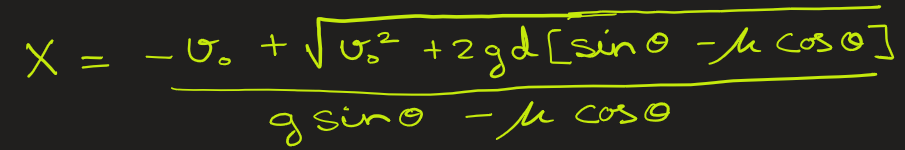 X = \frac{-v_0 + \sqrt{v_0^2 + 2gd[\sin\theta - \mu\cos\theta]}}{g\sin\theta - \mu\cos\theta}